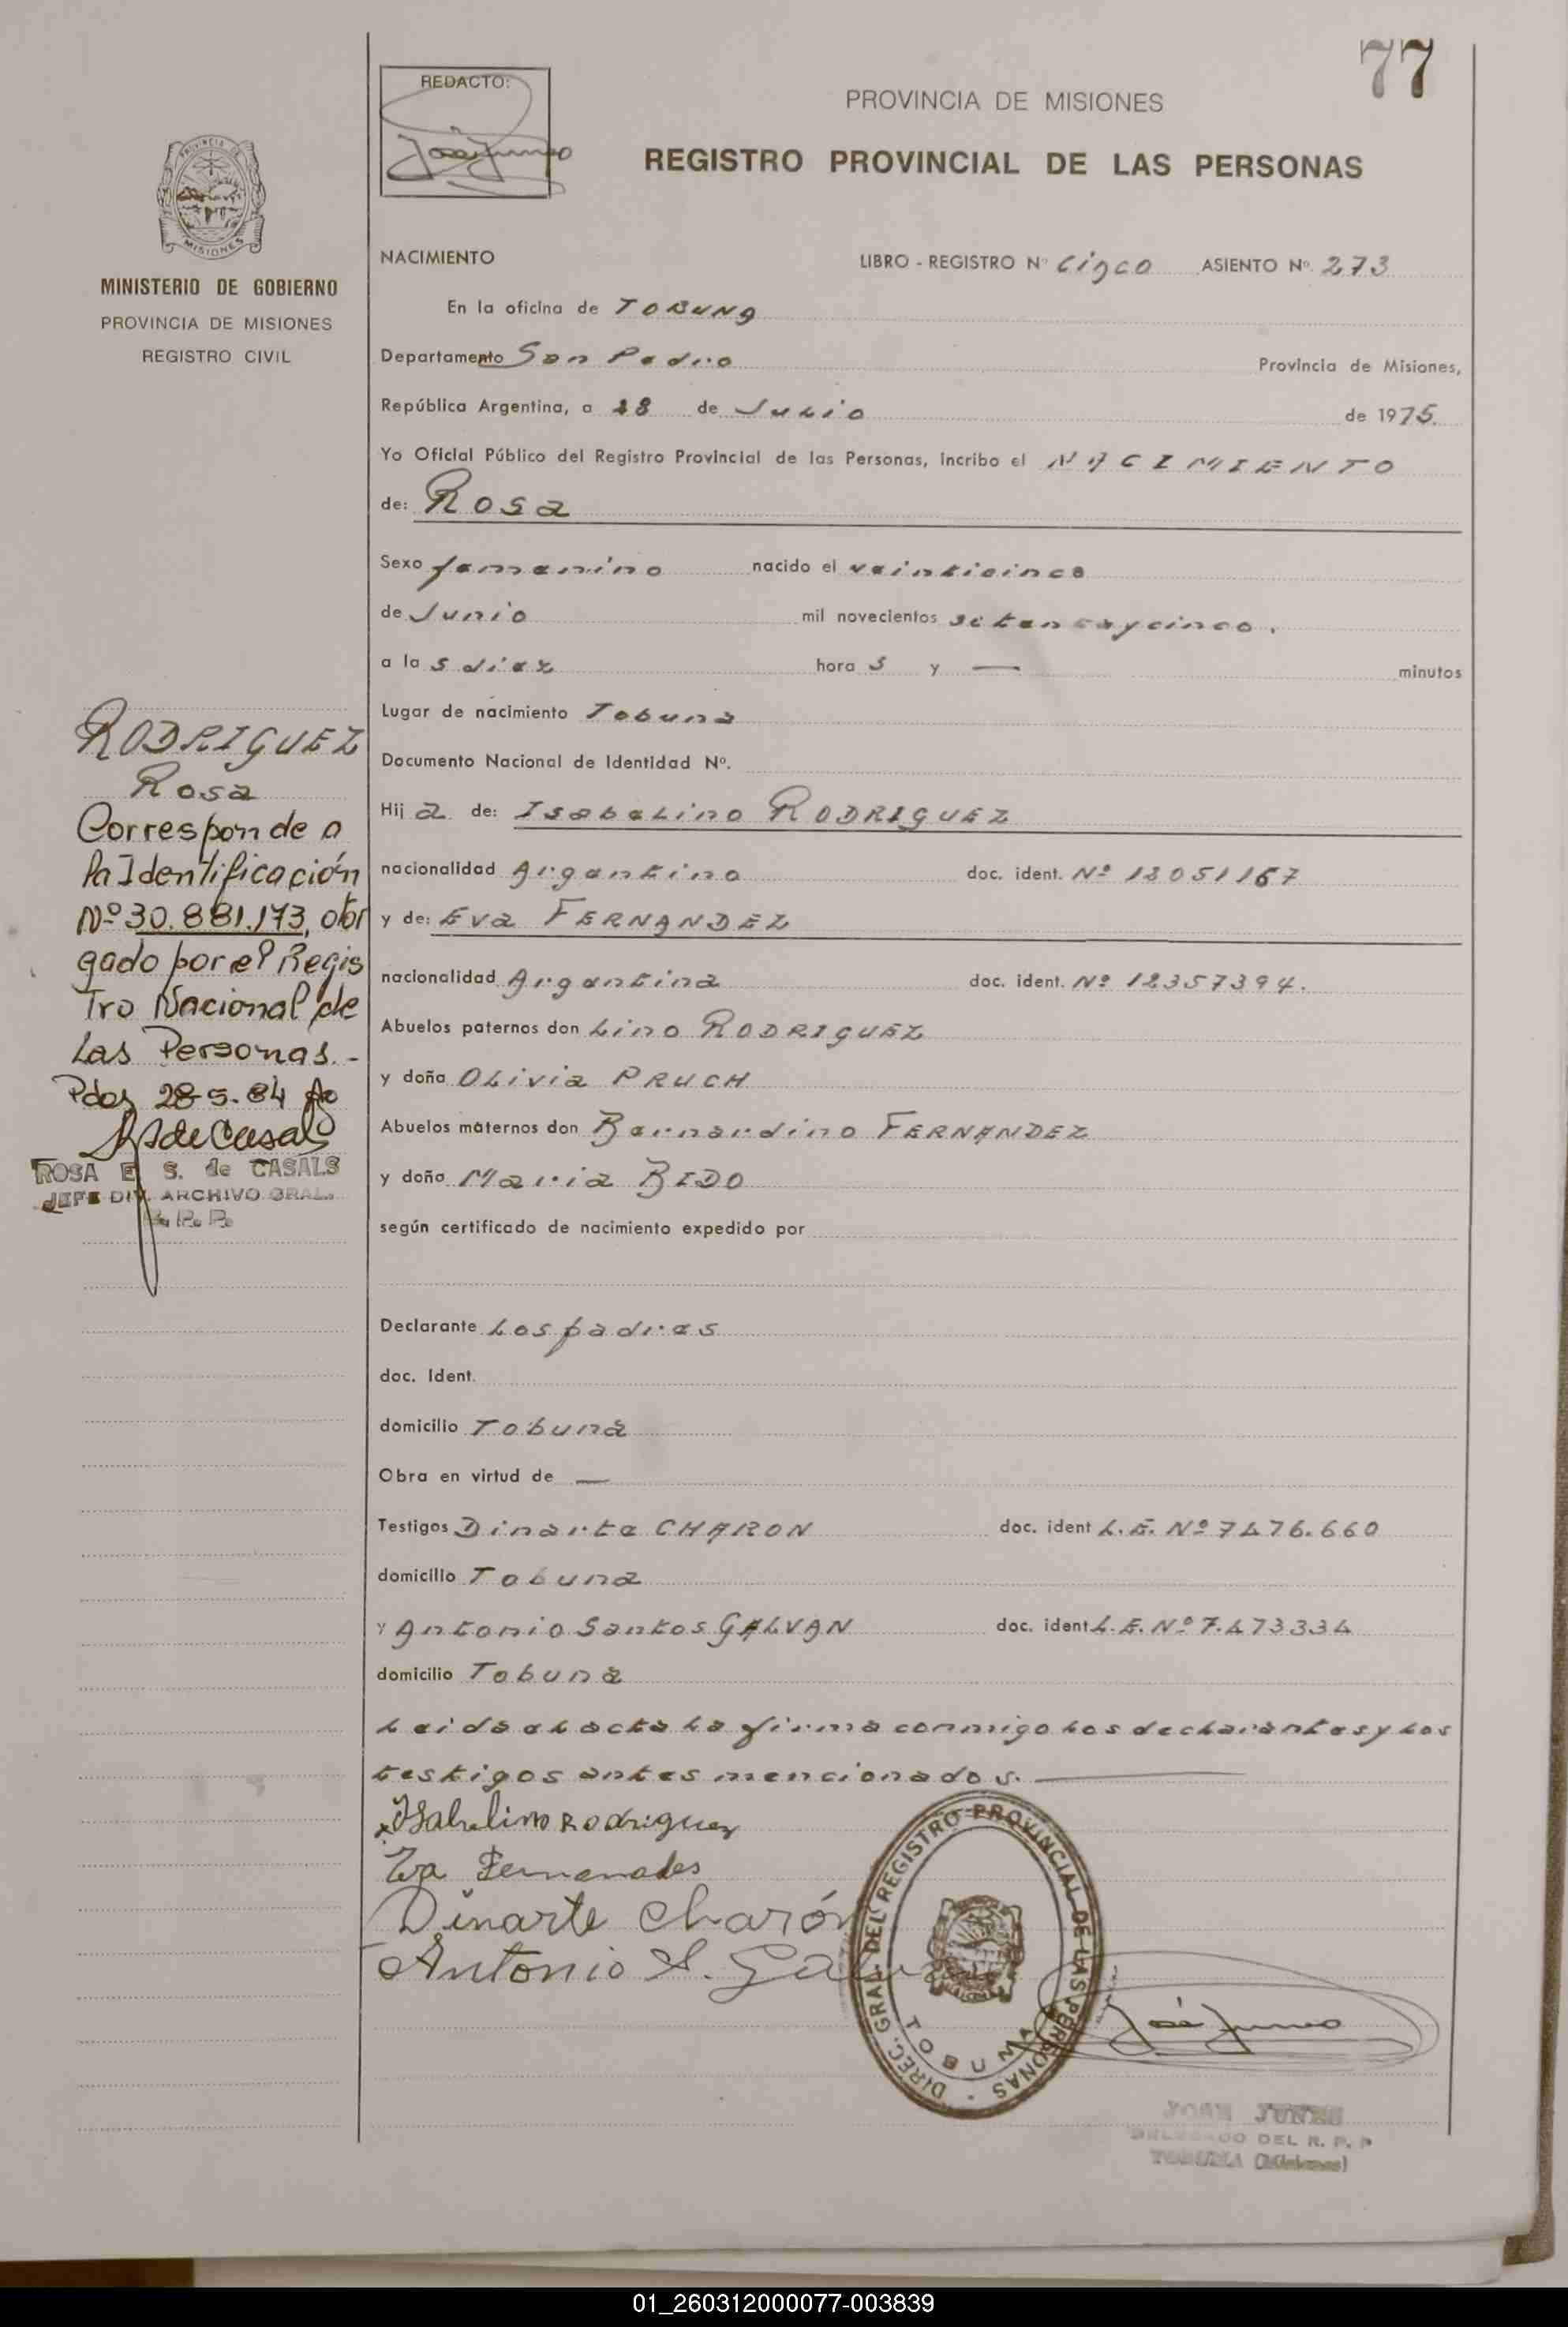 77
REDACTO:
PROVINCIA DE MISIONES
REGISTRO PROVINCIAL DE LAS PERSONAS
PROVINCIA DE
MISIONES
MINISTERIO DE GOBIERNO
PROVINCIA DE MISIONES
REGISTRO CIVIL
NACIMIENTO LIBRO - REGISTRO Nº Cinco ASIENTO Nº 273
En la oficina de TOBUNA
Departamento San Pedro Provincia de Misiones,
República Argentina, a 28 de Julio de 1975.
Yo Oficial Público del Registro Provincial de las Personas, incribo el NACIMIENTO
de: Rosa
Sexo femenino nacido el veinticinco
de Junio mil novecientos setentaycinco.
a la s diez hora s y — minutos
Lugar de nacimiento Tobuna
Documento Nacional de Identidad Nº.
Hij a de: Isabelino RODRIGUEZ
nacionalidad Argentino doc. ident. Nº 12051167
y de: Eva FERNANDEZ
nacionalidad Argentina doc. ident. Nº 12357394.
Abuelos paternos don Lino RODRIGUEZ
y doña Olivia PRUCH
Abuelos maternos don Bernardino FERNANDEZ
y doña Maria BIDO
según certificado de nacimiento expedido por
Declarante Los padres
doc. Ident.
domicilio Tobuna
Obra en virtud de —
Testigos Dinarte CHARON doc. ident L.E. Nº 7476.660
domicilio Tobuna
y Antonio Santos GALVAN doc. ident L.E. Nº 7.473334
domicilio Tobuna
Leida el acta la firma conmigo los declarantes y los
testigos antes mencionados.
RODRIGUEZ
Rosa
Corresponde a
la Identificación
Nº 30.881.173, otor
gado por el Regis
Tro Nacional de
Las Personas.-
Pdas 28-5-84
RSdeCasals
ROSA E. S. de CASALS
JEFE DIV. ARCHIVO GRAL.
R. P. P.
Isabelino Rodriguez
Eva Fernandes
Dinarte Charón
Antonio S. Galvan
DIREC. GRAL. DEL REGISTRO PROVINCIAL DE LAS PERSONAS -
TOBUNA
José Junes
JOSE JUNES
DELEGADO DEL R. P. P
TOBUNA (Misiones)
01_260312000077-003839